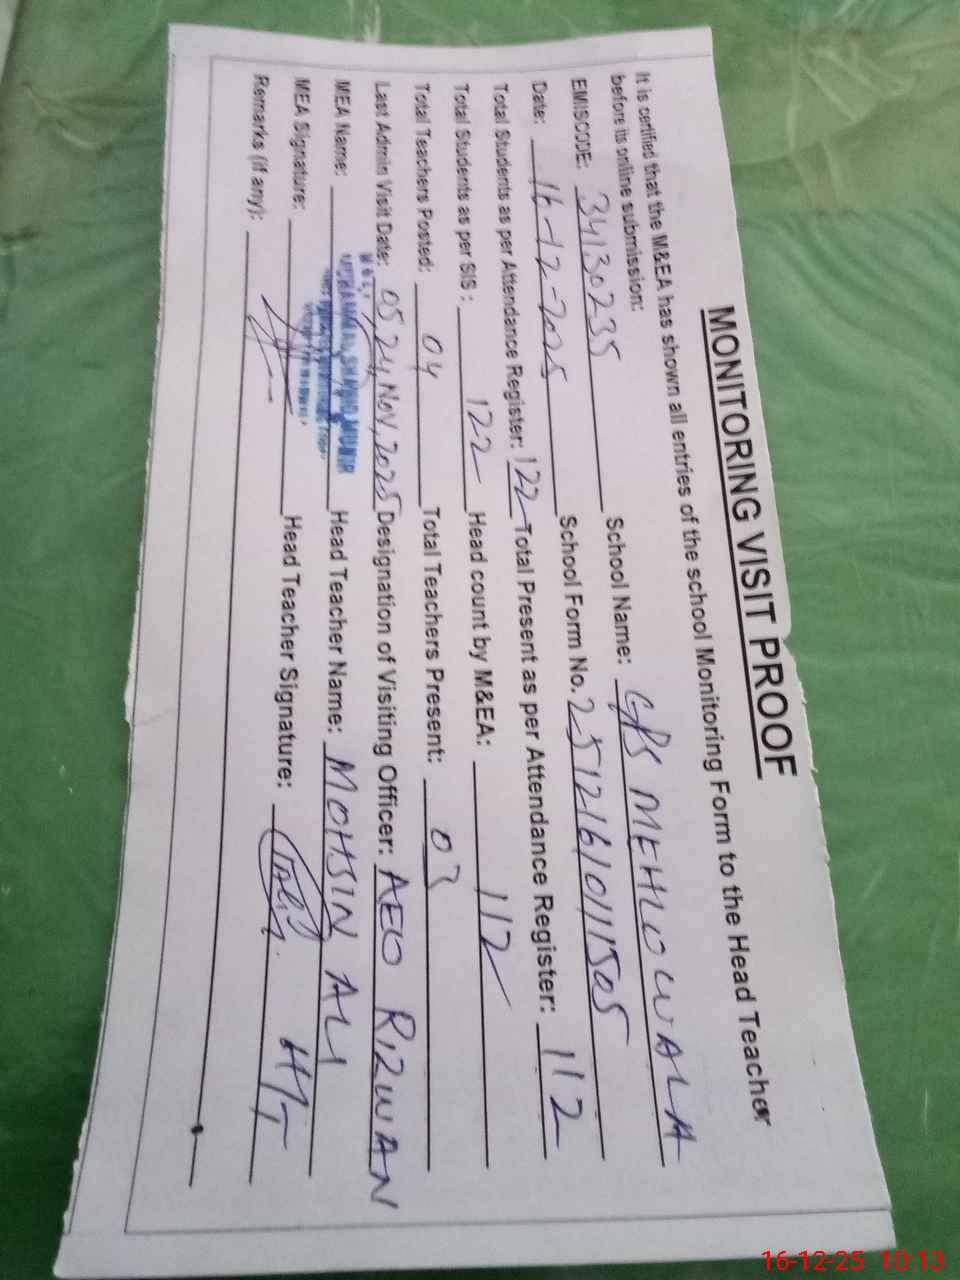 MONITORING VISIT PROOF
It is certified that the M&EA has shown all entries of the school Monitoring Form to the Head Teacher
before its online submission:
EMISCODE: 34130235 School Name: GPS MEHLOWALA
Date: 16-12-2025 School Form No. 251216/0111505
Total Students as per Attendance Register: 122 Total Present as per Attendance Register: 112
Total Students as per SIS: 122 Head count by M&EA: 112
Total Teachers Posted: 04 Total Teachers Present: 03
Last Admin Visit Date: 05,24,Nov,2025 Designation of Visiting Officer: AEO RIZWAN
MEA Name: MUHAMMAD SHAHID MUNIR Head Teacher Name: MOHSIN ALI
MEA Signature: Head Teacher Signature: H/T
Remarks (if any):
16-12-25 10:13